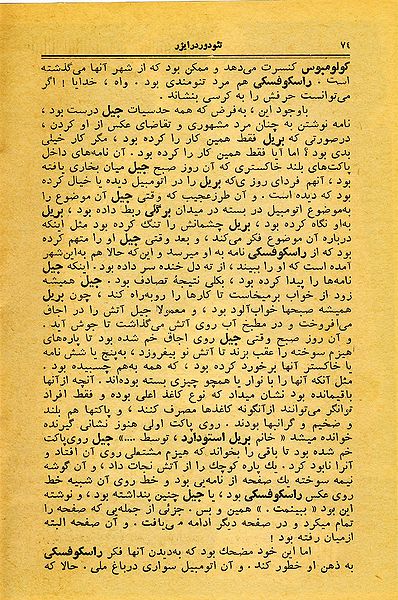 ۷۴
تئودور درایزر
کولومبوس کنسرت می‌دهد و ممکن بود که از شهر آنها می‌گذشته
است . راسکوفسکی هم مرد تنومندی بود . واه ، خدایا ! اگر
می‌توانست حرفش را به کرسی بنشاند .
باوجود این ، به‌فرض که همه حدسیات جیل درست بود ،
نامه نوشتن به چنان مرد مشهوری و تقاضای عکس از او کردن ،
درصورتی که بریل فقط همین کار را کرده بود ، مگر کار خیلی
بدی بود ؟ اما آیا فقط همین کار را کرده بود . آن نامه‌های داخل
پاکت‌های بلند خاکستری که آن روز صبح جیل میان بخاری یافته
بود ، آنهم فردای روزی که بریل را در اتومبیل دیده یا خیال کرده
بود که دیده است . و آن طرزعجیب که وقتی جیل آن موضوع را
به‌موضوع اتومبیل در بسته در میدان برگلی ربط داده بود ، بریل
به‌او نگاه کرده بود ، بریل چشمانش را تنگ کرده بود مثل اینکه
درباره آن موضوع فکر می‌کند ، و بعد وقتی جیل او را متهم کرده
بود که از راسکوفسکی نامه به او میرسد و این‌که حالا هم به‌این‌شهر
آمده است که او را ببیند ، از ته دل خنده سر داده بود . اینکه جیل
نامه‌ها را پیدا کرده بود ، بکلی نتیجهٔ تصادف بود . جیل همیشه
زود از خواب برمیخاست تا کارها را روبه‌راه کند ، چون بریل
همیشه صبحها خواب‌آلود بود ، و معمولا جیل آتش را در اجاق
می‌افروخت و در مطبخ آب روی آتش می‌گذاشت تا جوش آید .
و آن روز صبح وقتی جیل روی اجاق خم شده بود تا پاره‌های
هیزم سوخته را عقب بزند تا آتش نو بیفروزد ، به‌پنج یا شش نامه
یا خاکستر آنها برخورد کرده بود ، که همه به‌هم چسبیده بود .
مثل آنکه آنها را با نوار یا همچو چیزی بسته بوده‌اند . آنچه ازآنها
باقیمانده بود نشان میداد که نوع کاغذ اعلی بوده و فقط افراد
توانگر می‌توانند ازآنگونه کاغذها مصرف کنند ، و پاکتها هم بلند
و ضخیم و گرانبها بودند . روی پاکت اولی هنوز نشانی گیرنده
خوانده میشد « خانم بریل استودارد ، توسط ....» جیل روی‌پاکت
خم شده بود تا باقی را بخواند که هیزم مشتعلی روی آن افتاد و
آنرا نابود کرد . یك پاره کوچك را از آتش نجات داد ، و آن گوشه
نیمه سوخته یك صفحه از نامه‌یی بود و خط روی آن شبیه خط
روی عکس راسکوفسکی بود ، یا جیل چنین پنداشته بود ، و نوشته
این بود « ببینمت . » همین و بس . جزئی از جمله‌یی که صفحه را
تمام میکرد و در صفحه دیگر ادامه می‌یافت . و آن صفحه البته
ازمیان رفته بود !
اما این خود مضحك بود که به‌دیدن آنها فکر راسکوفسکی
به ذهن او خطور کند . و آن اتومبیل سواری درباغ ملی . حالا که